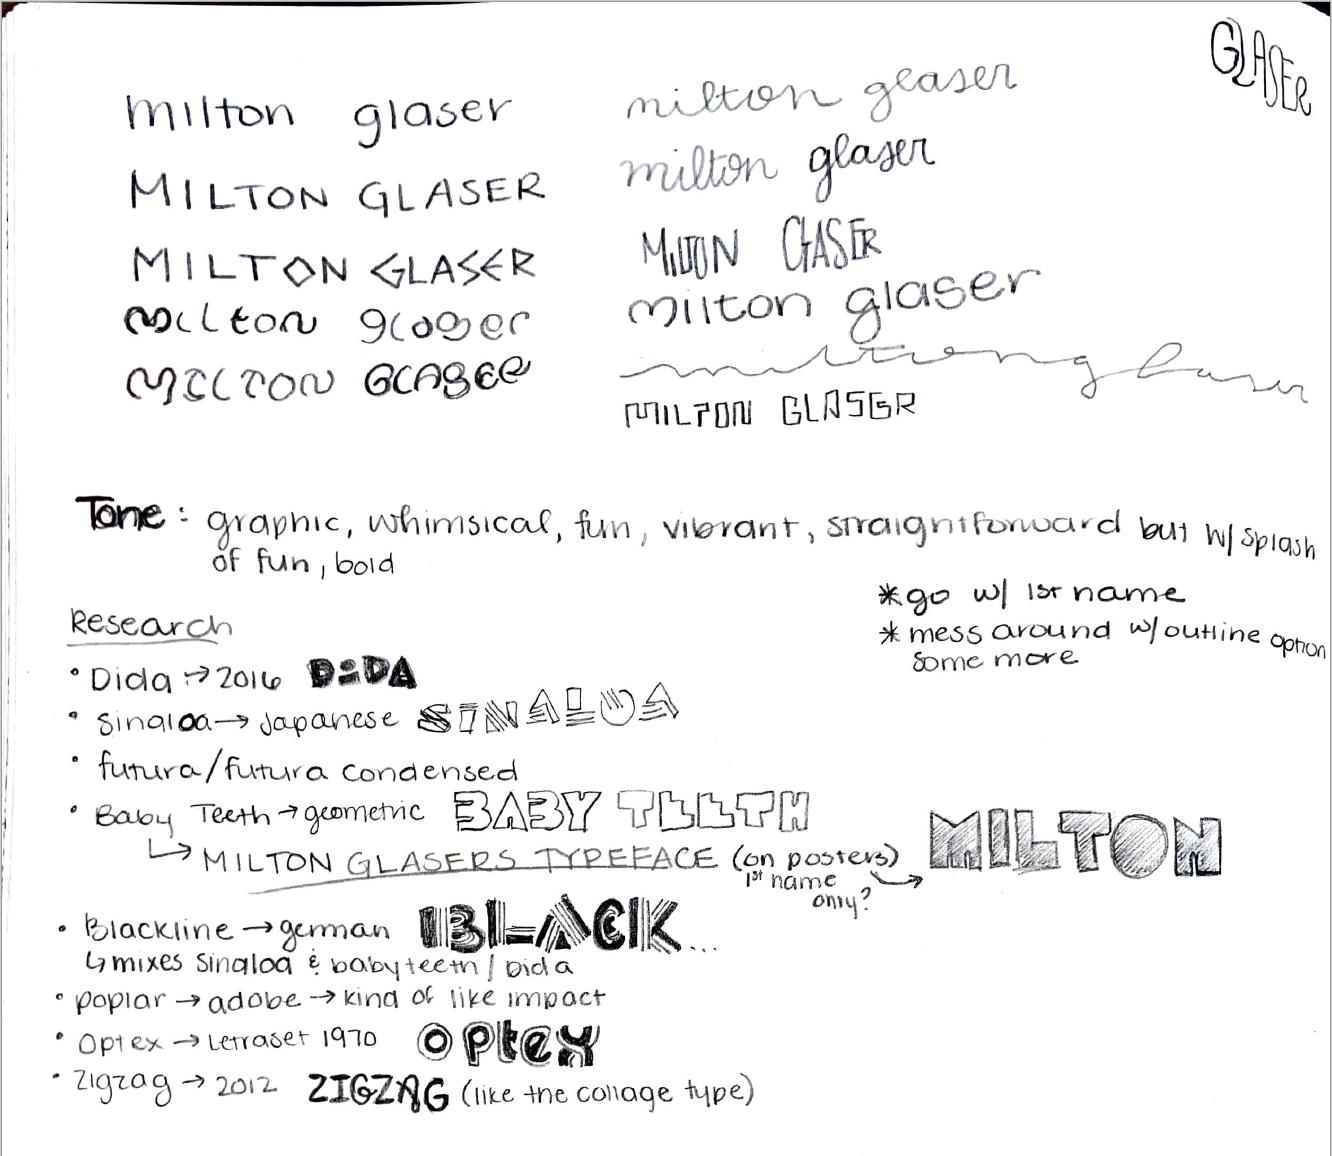 GLASER
milton glaser
MILTON GLASER
MILTON GLASER
milton glaser
MILTON GLASER
milton glaser
milton glaser
MILTON GLASER
milton glaser
milton glaser
MILTON GLASER
Tone: graphic, whimsical, fun, vibrant, straightforward but w/ splash
of fun, bold
*go w/ 1st name
* mess around w/ outline option
some more
Research
• Dida → 2016 DIDA
• Sinaloa → Japanese SINALOA
• futura/futura condensed
• Baby Teeth → geometric BABY TEETH
↳ MILTON GLASERS TYPEFACE (on posters)
1st name
only? → MILTON
• Blackline → german BLACK...
↳ mixes Sinaloa & baby teeth / Dida
• poplar → adobe → kind of like impact
• Optex → Letraset 1970 Optex
• Zigzag → 2012 ZIGZAG (like the collage type)